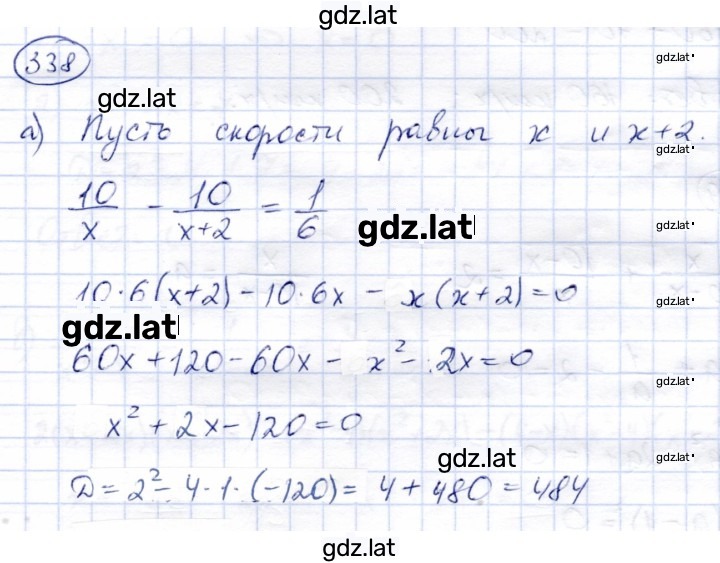 gdz.lat
338
gdz.lat
gdz.lat
а) Пусть скорости равны x и x+2.
gdz.lat
10/x - 10/(x+2) = 1/6
gdz.lat
gdz.lat
10·6(x+2) - 10·6x - x(x+2) = 0
gdz.lat
gdz.lat
60x + 120 - 60x - x² - 2x = 0
gdz.lat
x² + 2x - 120 = 0
gdz.lat
gdz.lat
Д = 2² - 4·1·(-120) = 4 + 480 = 484
gdz.lat